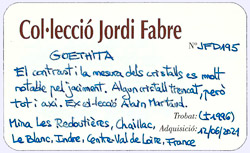 Col·lecció Jordi Fabre
Nº JFD195
GOETHITA
El contrast i la mesura dels cristalls es molt
notable pel jaciment. Algun cristall trencat, però
tot i així. Ex col·lecció Alain Martaud.
Trobat: (±1996)
Mina Les Redoutières, Chaillac,
Adquisició: 12/06/2021
Le Blanc, Indre, Centre-Val de Loire, France